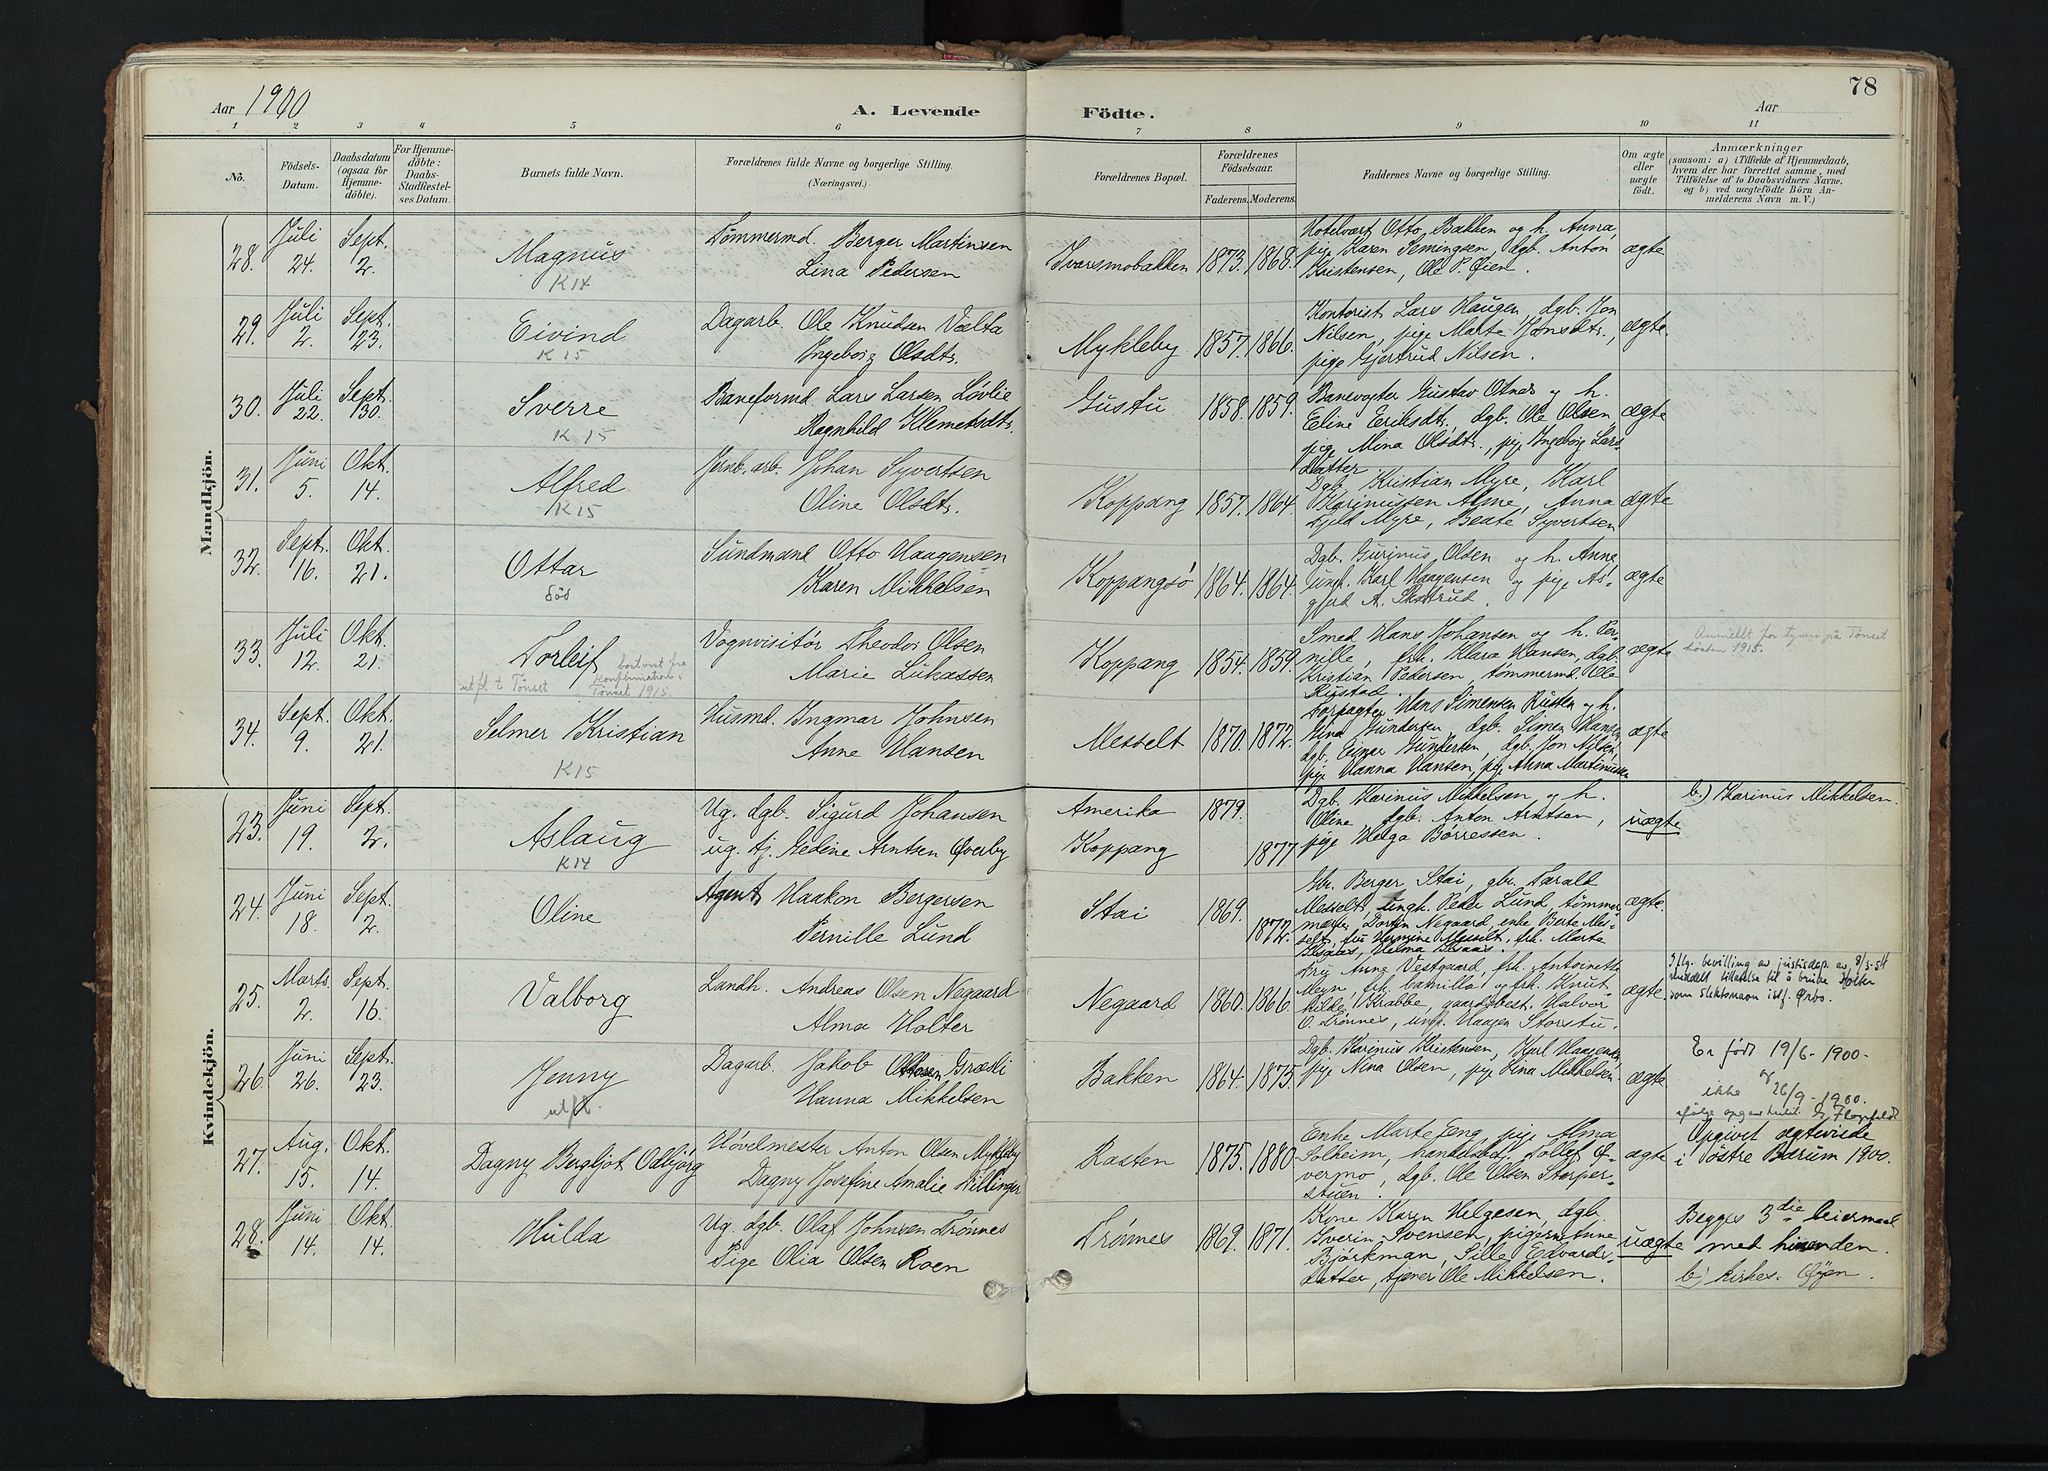 Aar 1900
A. Levende
Födte.
Aar
78
1 2 3 4 5 6 7 8 9 10 11
No.
Födsels-Datum.
Daabsdatum (ogsaa for Hjemmedöbte).
For Hjemmedöbte: Daabs-Stadfæstelses Datum.
Barnets fulde Navn.
Forældrenes fulde Navne og borgerlige Stilling. (Næringsvei.)
Forældrenes Bopæl.
Forældrenes Födselsaar.
Faderens. Moderens.
Faddernes Navne og borgerlige Stilling.
Om ægte eller uægte födt.
Anmærkninger
(saasom: a) i Tilfælde af Hjemmedaab, hvem der har forrettet samme, med Tilföielse af to Daabsvidners Navne, og b) ved uægtefödte Börn Anmelderens Navn m. V.)
Mandkjön.
28. Juli 24. Sept. 2. Magnus K 14
Tömmermd. Berger Martinsen
Lina Pedersen
Tvarsmobakken 1873. 1868.
Hotelvært Otto Bakken og h. Anna,
pige Karen Semingsen, dgb. Anton
Kristensen, Ole P. Øien.
ægte
29. Juli 2. Sept. 23. Eivind K 15
Dagarb. Ole Knudsen Vælta
Ingeborg Olsdtr.
Mykleby 1857. 1866.
Kontorist Lars Haugen, dgb. Jon
Nilsen, pige Marte Jonsdtr.,
pige Gjertrud Nilsen.
ægte
30. Juli 22. Sept. 30. Sverre K 15
Baneformd. Lars Larsen Løvlie
Ragnhild Klemetsdtr.
Gustu 1858. 1859.
Banevogter Gustav Otnes og h.
Eline Eriksdtr., dgb. Ole Olsen,
pige Mina Olsdtr., pige Ingeborg Lars
datter.
ægte
31. Juni 5. Okt. 14. Alfred K 15
Jernb. arb. Johan Syvertsen
Oline Olsdtr.
Koppang 1857. 1864.
Dgb. Kristian Myre, Karl
Karinussen Alme, Anna
Myre, Beate Syvertsen
ægte
32. Sept. 16. Okt. 21. Ottar död
Sundmand Otto Haagensen
Karen Mikkelsen
Koppangsö 1864. 1864.
Dgb. Gurinus Olsen og h. Anne,
ung. Karl Haagensen og pige As-
gjerd A. Skotrud.
ægte
33. Juli 12. Okt. 21. Torleif
utfl. t. Tönset bortvist fra Konfirmation i Tönset 1915.
Vognvisitör Theodor Olsen
Marie Lukassen
Koppang 1854. 1859.
Smed Hans Johansen og h. Per-
nille, frk. Klara Hansen, dgb.
Kristian Pedersen, tömmermd. Ole
Rustad.
ægte
Anmeldt for tyveri på Tönset
hösten 1915.
34. Sept. 9. Okt. 21. Selmer Kristian K 15
Husmd. Ingmar Johnsen
Anne Hansen
Messelt 1870. 1872.
Forpagter Hans Simensen Rusten og h.
Gina Gundersen, dgb. Simen Hansen
dgb. Einar Gundersen, dgb. Jon Nilsen,
pige Hanna Hansen, pige Anna Martinussen
ægte
Kvindekjön.
23. Juni 19. Sept. 2. Aslaug K 14
Ug. dgb. Sigurd Johansen
ug. tj. Gedine Arntsen Øverby
Amerika 1879.
Koppang 1877.
Dgb. Karinus Mikkelsen og h.
Oline, dgb. Anton Arntsen,
pige Helga Børressen.
uægte
b.) Karinus Mikkelsen.
24. Juni 18. Sept. 2. Oline
Agent Haakon Bergersen
Pernille Lund
Stai 1869. 1872.
Gbr. Berger Stai, gbr. Taralt
Messelt, ungk. Peder Lund, tömmer
mærker Dortin Negaard, enke Berte Mes-
selt, fru Hermine Messelt, frk. Marte
ægte.
25. Marts 2. Sept. 16. Valborg
Landh. Andreas Olsen Negaard
Alma Holter
Negaard 1860. 1866.
Frk. Anne Vestgaard, frk. Antoinette
Meyn, frk. Camilla og frk. Knut
hilde Krabbe, gaardsbest. Halvor
O. Trønnes, ungk. Haagen Storstu.
ægte
Iflg. bevilling av justisdep. av 8/3-54
meddelt tillatelse til å bruke Holter
som slektsnavn istf. Ørbo.
26. Juni 26. Sept. 23. Jenny utfl.
Dagarb. Jakob Ottosen Græsli
Hanna Mikkelsen
Bakken 1864. 1875.
Dgb. Karinus Kristensen, Karl Haagensen
pige Nina Olsen, pige Lina Mikkelsen
ægte
Er født 19/6-1900
og
ikke 26/9-1900.
27. Aug. 15. Okt. 14. Dagny Bergljot Odbjørg
Hövelmester Anton Olsen Mykleby
Dagny Josefine Amalie Dillinger
Rasten 1875. 1880
Enke Marte Eng, pige Alma
Solheim, handelsbet. Tollef Ø-
vermo, dgb. Ole Olsen Storper-
stuen.
ægte
Opgivet ægteviede
i Östre Bærum 1900.
28. Juni 14. Okt. 14. Hulda
Ug. dgb. Olaf Johnsen Trønnes
Pige Olia Olsen Roen
Trønnes 1869. 1871.
Kone Karen Helgesen, dgb.
Sverin Svensen, pigerne Anne
Bjørkman, Sille Edvards-
datter, tjener Ole Mikkelsen.
uægte
Begges 3die leiermaal
med hinanden.
b) kirkes. Øyen.